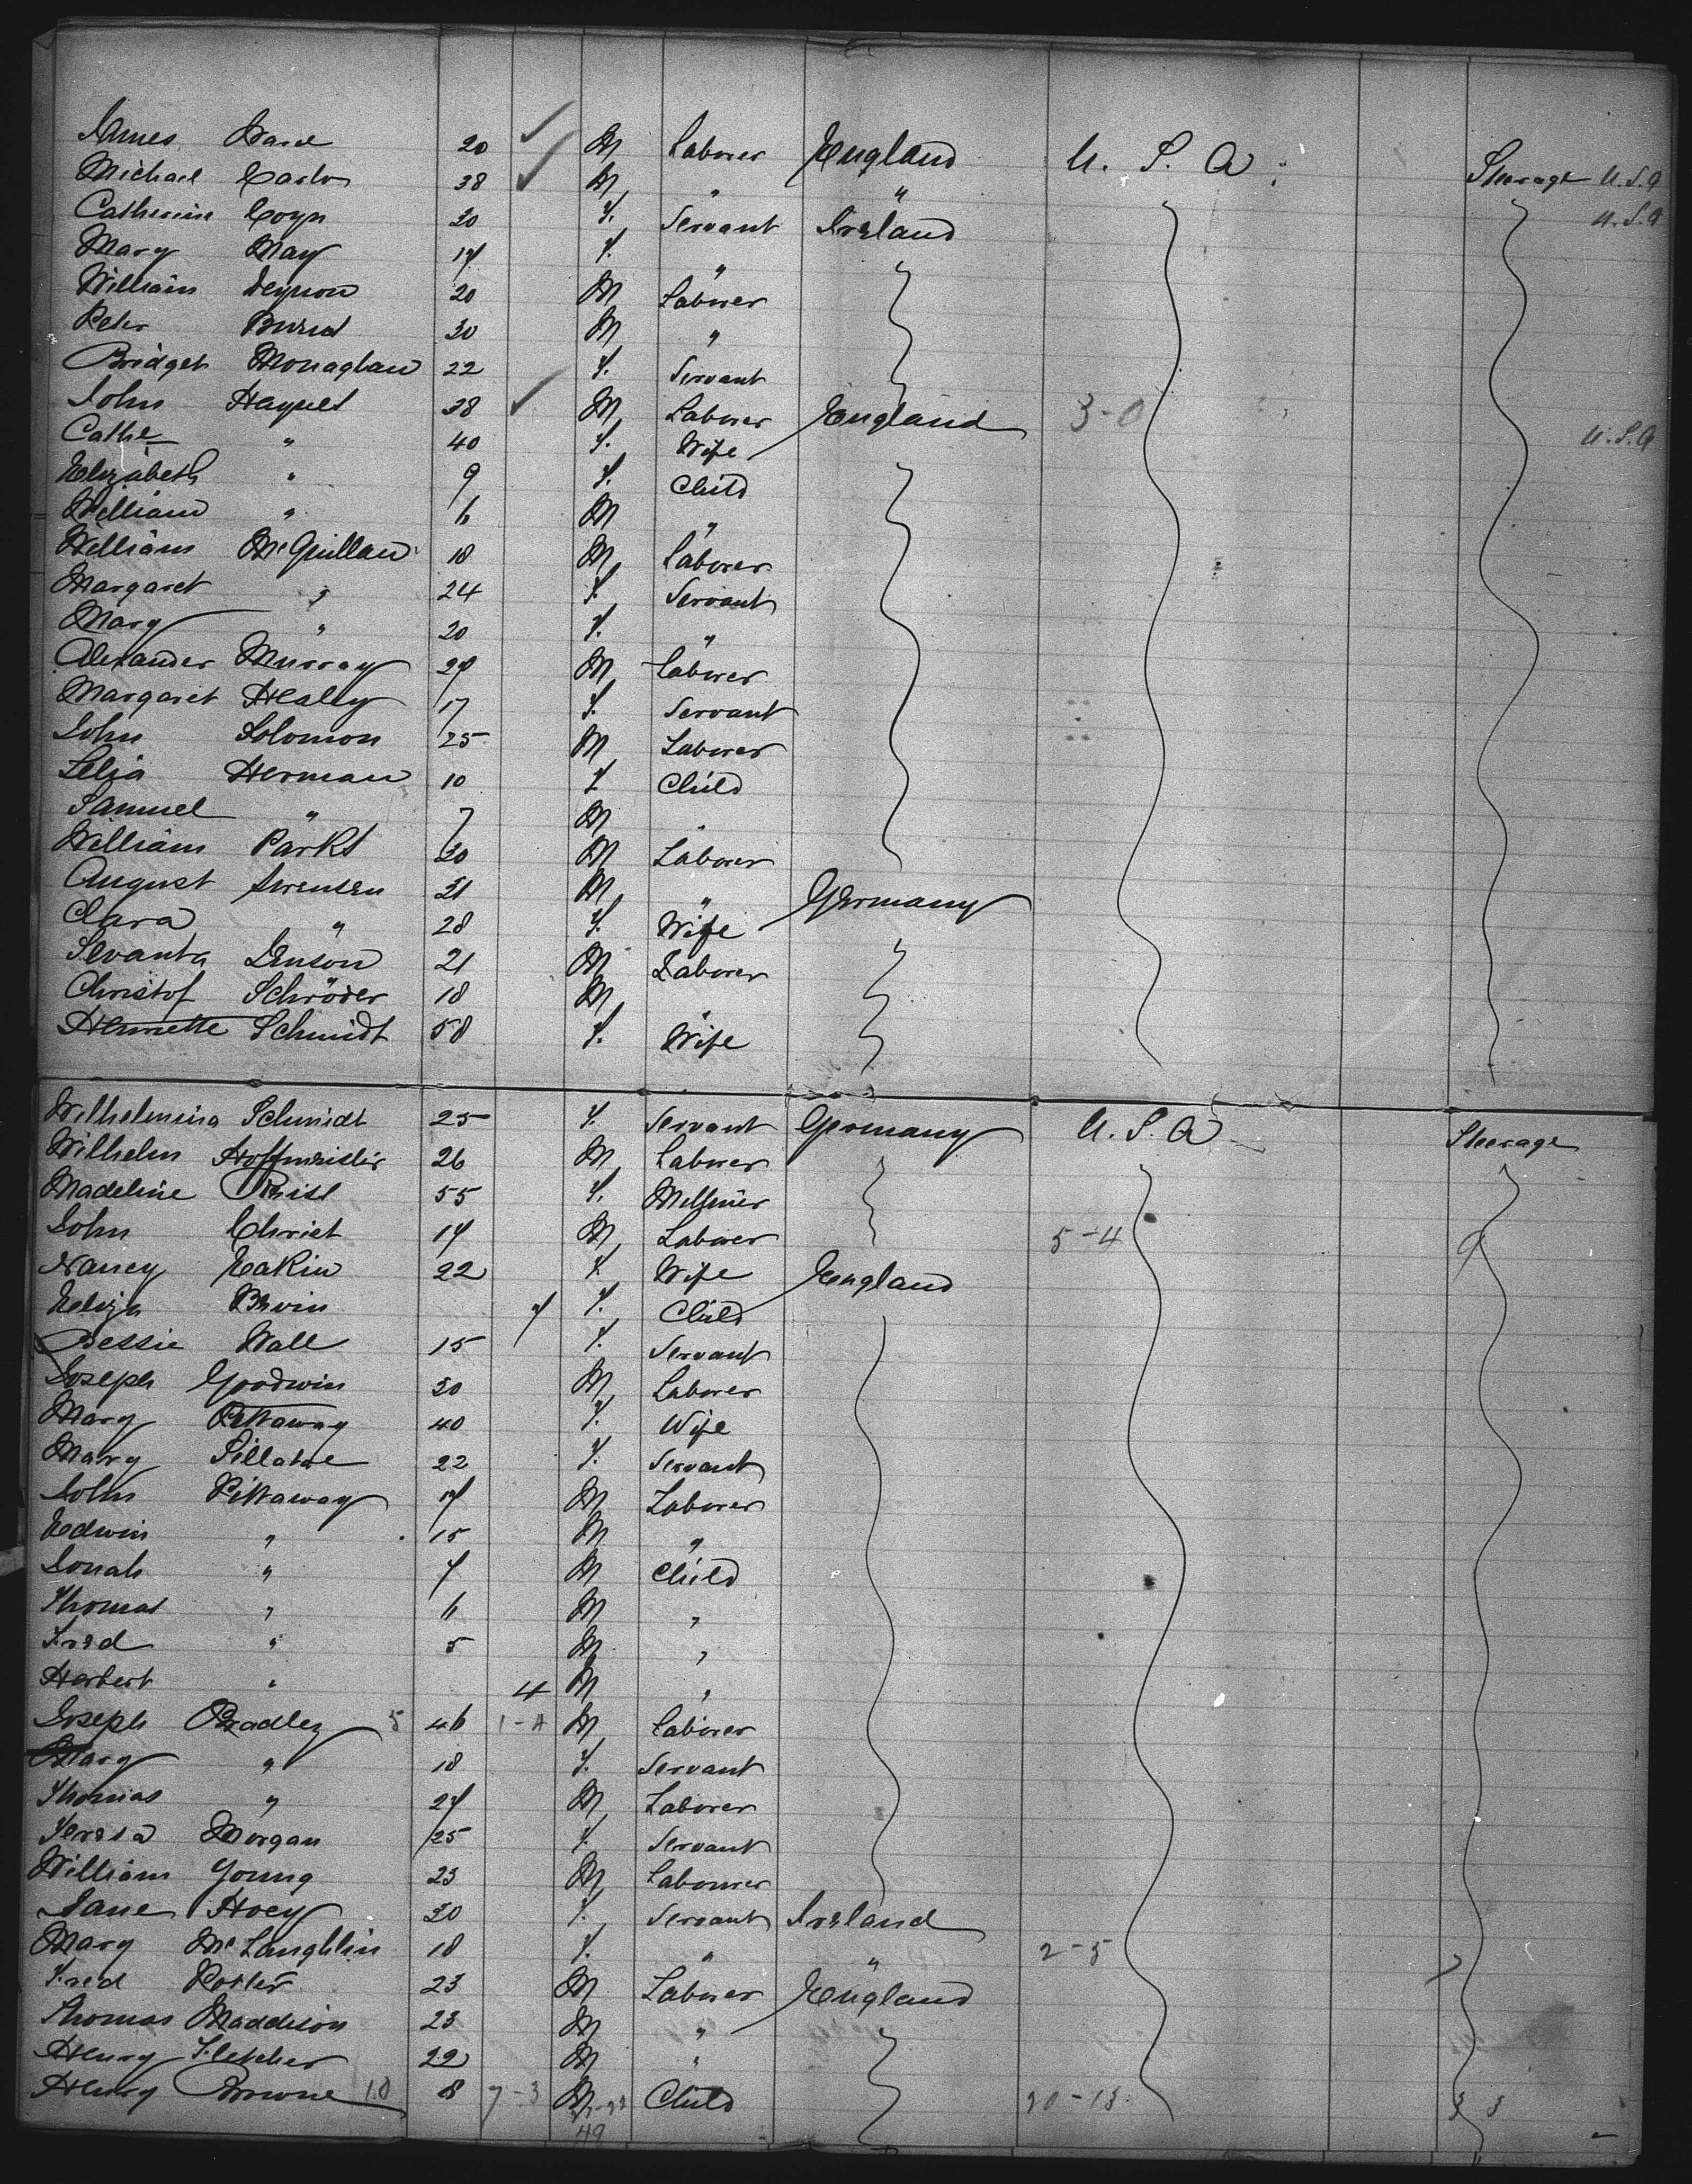 James 20 M Laborer England U. S. A. Steerage U.S.A
Michael 38 M " " U.S.A
Catherine Coyn 30 f. Servant Ireland
Mary May 17 f. "
William 20 M Laborer
Peter 30 M "
Bridget Monaghan 22 f. Servant
John Haynes 38 M Laborer England 3-0
Cathe " 40 f. Wife U.S.A
Elizabeth " 9 f. Child
William " 6 M "
William McQuillan 18 M Laborer
Margaret " 24 f. Servant
Mary " 20 f. "
Alexander Murray 27 M Laborer
Margaret Healy 17 f. Servant
John Solomon 25 M Laborer
Lelia Herman 10 f Child
Samuel " 7 M "
William Parks 30 M Laborer
August Sorensen 31 M " Germany
Clara " 28 f. Wife
Sevanta Jenson 21 M Laborer
Christof Schröder 18 M "
Henriette Schmidt 58 f. Wife
Wilhelmina Schmidt 25 f. Servant Germany U. S. A Steerage
Wilhelm Hoffmeister 26 M Laborer
Madeline 55 f. Milliner
John Christ 17 M Laborer 5-4 9
Nancy Eakin 22 f. Wife England
Eliza f. Child
Bessie Wall 15 f. Servant
Joseph Goodwin 30 M Laborer
Mary Pittaway 40 f. Wife
Mary 22 f. Servant
John Pittaway 17 M Laborer
Edwin " 15 M "
Jonah " 7 M Child
Thomas " 6 M "
Fred " 5 M "
Herbert " 4 M "
Joseph Bradley 5 46 1-4 M Laborer
Mary " 18 f. Servant
Thomas " 27 M Laborer
Teresa Morgan 25 f. Servant
William Young 23 M Labourer
Jane Hoey 30 f. Servant Ireland
Mary McLaughlin 18 f. " " 2-5
Fred 23 M Laborer England
Thomas Maddison 23 M "
Henry Fletcher 22 M "
Henry Browne 18 8 7-3 M Child 20-13 3 3
49